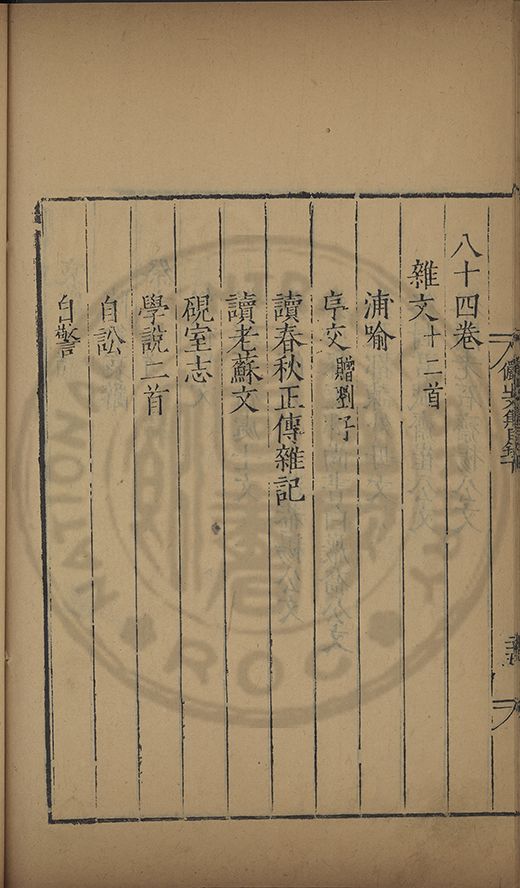 八十四卷
雜文十二首
浦喻
字交贈劉子
讀春秋正傳雜記
讀老蘇文
硯室志
學說二首
自訟
自警